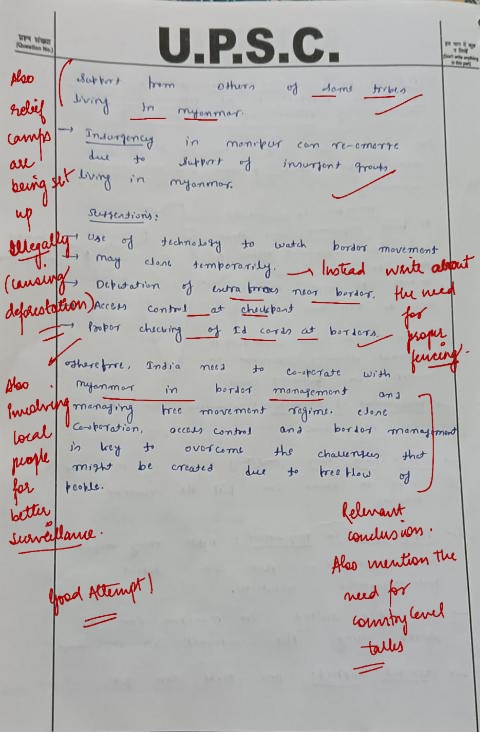 U.P.S.C.
प्रश्न संख्या
(Question No.)
(Don't write anything in this part)
Support from others of same tribes
living in myanmar.
→ Insurgency in manipur can re-emerge
due to support of insurgent groups
living in myanmar.
Suggestions:
→ Use of technology to watch border movement
→ May close temporarily.
→ Deputation of extra forces near border.
Access control at checkpoint
→ Proper checking of Id cards at borders
otherefore, India need to co-operate with
myanmar in border management and
managing free movement regime. close
Co-operation, access control and border management
is key to overcome the challenges that
might be created due to free flow of
people.
Also
relief
camps
are
being set
up
illegally
(causing
deforestation)
→ Instead write about
the need
for
proper
fencing.
Also
involving
local
people
for
better
surveillance.
Relevant
conclusion.
Also mention the
need for
country level
talks
Good Attempt!